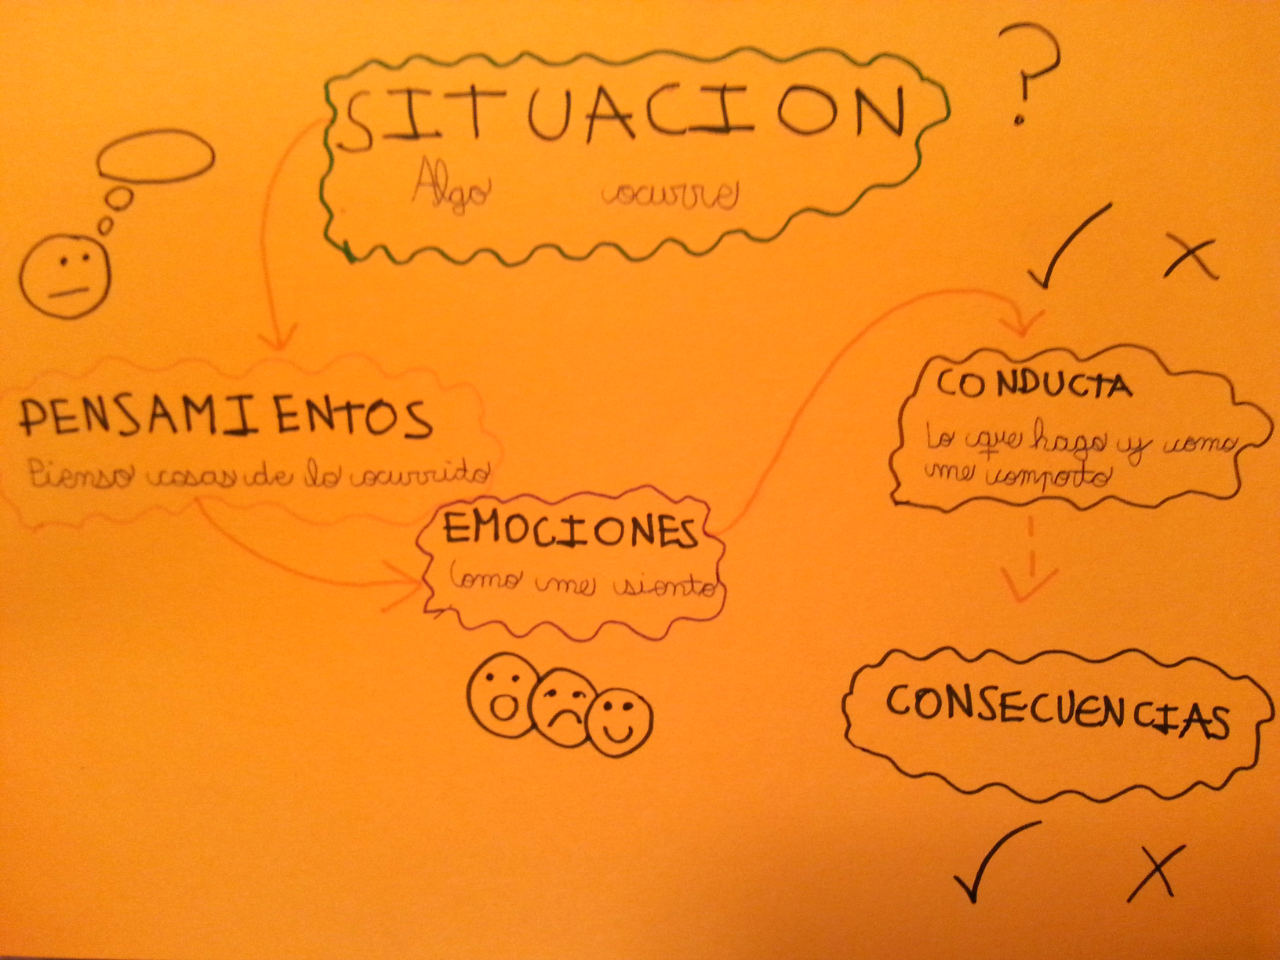 SITUACION
Algo ocurre
?
PENSAMIENTOS
Pienso cosas de lo ocurrido
EMOCIONES
Como me siento
CONDUCTA
Lo que hago y como
me comporto
CONSECUENCIAS